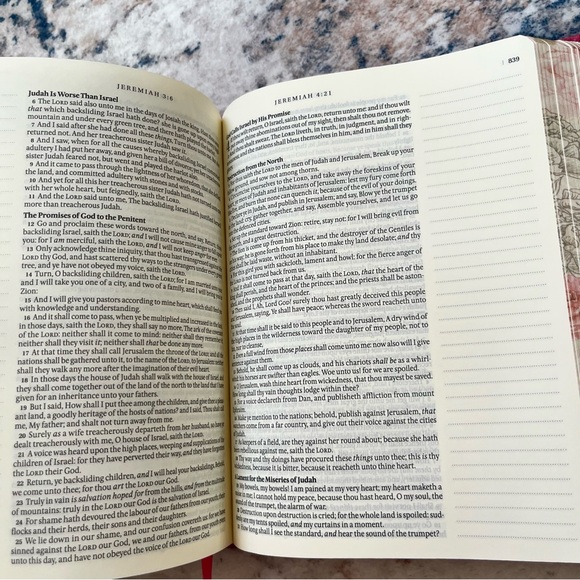 JEREMIAH 3:6
Judah Is Worse Than Israel
6 The LORD said also unto me in the days of Josiah the king,
that which backsliding Israel hath done? she is gone up
mountain and under every green tree, and there hath
7 And I said after she had done all these things, Turn
returned not. And her treacherous sister Judah saw it.
8 And I saw, when for all the causes whereby backsliding
adultery I had put her away, and given her a bill of divorce; yet
sister Judah feared not, but went and played the harlot
9 And it came to pass through the lightness of her whoredom, that
the land, and committed adultery with stones and
10 And yet for all this her treacherous sister Judah hath not
with her whole heart, but feignedly, saith the LORD.
11 And the LORD said unto me, The backsliding Israel hath justified
more than treacherous Judah.
The Promises of God to the Penitent
12 Go and proclaim these words toward the north, and say,
backsliding Israel, saith the LORD; and I will not cause mine anger
you: for I am merciful, saith the LORD, and I will not keep anger
13 Only acknowledge thine iniquity, that thou hast transgressed
LORD thy God, and hast scattered thy ways to the strangers under
tree, and ye have not obeyed my voice, saith the LORD.
14 Turn, O backsliding children, saith the LORD; for I am married
and I will take you one of a city, and two of a family, and I will bring
Zion:
15 And I will give you pastors according to mine heart, which shall
with knowledge and understanding.
16 And it shall come to pass, when ye be multiplied and increased in the
in those days, saith the LORD, they shall say no more, The ark of the
of the LORD: neither shall it come to mind: neither shall they remember
neither shall they visit it; neither shall that be done any more.
17 At that time they shall call Jerusalem the throne of the LORD; and all
nations shall be gathered unto it, to the name of the LORD, to Jerusalem:
shall they walk any more after the imagination of their evil heart.
18 In those days the house of Judah shall walk with the house of Israel,
they shall come together out of the land of the north to the land that
given for an inheritance unto your fathers.
19 But I said, How shall I put thee among the children, and give thee
ant land, a goodly heritage of the hosts of nations? and I said, Thou shalt
me, My father; and shalt not turn away from me.
20 Surely as a wife treacherously departeth from her husband, so
dealt treacherously with me, O house of Israel, saith the LORD.
21 A voice was heard upon the high places, weeping and supplications of
children of Israel: for they have perverted their way, and they have
the LORD their God.
22 Return, ye backsliding children, and I will heal your backslidings.
we come unto thee; for thou art the LORD our God.
23 Truly in vain is salvation hoped for from the hills, and from the multitude
of mountains: truly in the LORD our God is the salvation of Israel.
24 For shame hath devoured the labour of our fathers from our youth;
flocks and their herds, their sons and their daughters.
25 We lie down in our shame, and our confusion covereth us: for we
sinned against the LORD our God, we and our fathers, from our youth
unto this day, and have not obeyed the voice of the LORD our God.
JEREMIAH 4:21
839
Israel by His Promise
wilt return, O Israel, saith the LORD, return unto me: and if thou wilt
thine abominations out of my sight, then shalt thou not remove.
shalt swear, The LORD liveth, in truth, in judgment, and in right-
and the nations shall bless themselves in him, and in him shall they
from the North
saith the LORD to the men of Judah and Jerusalem, Break up your
ground, and sow not among thorns.
yourselves to the LORD, and take away the foreskins of your
men of Judah and inhabitants of Jerusalem: lest my fury come forth
burn that none can quench it, because of the evil of your doings.
in Judah, and publish in Jerusalem; and say, Blow ye the trumpet
cry, gather together, and say, Assemble yourselves, and let us go
defenced cities.
the standard toward Zion: retire, stay not: for I will bring evil from
north, and a great destruction.
is come up from his thicket, and the destroyer of the Gentiles is
way; he is gone forth from his place to make thy land desolate; and thy
shall be laid waste, without an inhabitant.
this gird you with sackcloth, lament and howl: for the fierce anger of
is not turned back from us.
shall come to pass at that day, saith the LORD, that the heart of the
shall perish, and the heart of the princes; and the priests shall be aston-
and the prophets shall wonder.
said I, Ah, Lord GOD! surely thou hast greatly deceived this people
saying, Ye shall have peace; whereas the sword reacheth unto
time shall it be said to this people and to Jerusalem, A dry wind of
high places in the wilderness toward the daughter of my people, not to
nor to cleanse,
a full wind from those places shall come unto me: now also will I give
against them.
Behold, he shall come up as clouds, and his chariots shall be as a whirl-
his horses are swifter than eagles. Woe unto us! for we are spoiled.
Jerusalem, wash thine heart from wickedness, that thou mayest be saved.
long shall thy vain thoughts lodge within thee?
a voice declareth from Dan, and publisheth affliction from mount
Make ye mention to the nations; behold, publish against Jerusalem, that
come from a far country, and give out their voice against the cities
keepers of a field, are they against her round about; because she hath
rebellious against me, saith the LORD.
way and thy doings have procured these things unto thee; this is thy
wickedness, because it is bitter, because it reacheth unto thine heart.
Lament for the Miseries of Judah
my bowels, my bowels! I am pained at my very heart; my heart maketh a
in me; I cannot hold my peace, because thou hast heard, O my soul, the
of the trumpet, the alarm of war.
Destruction upon destruction is cried; for the whole land is spoiled: sud-
are my tents spoiled, and my curtains in a moment.
How long shall I see the standard, and hear the sound of the trumpet?